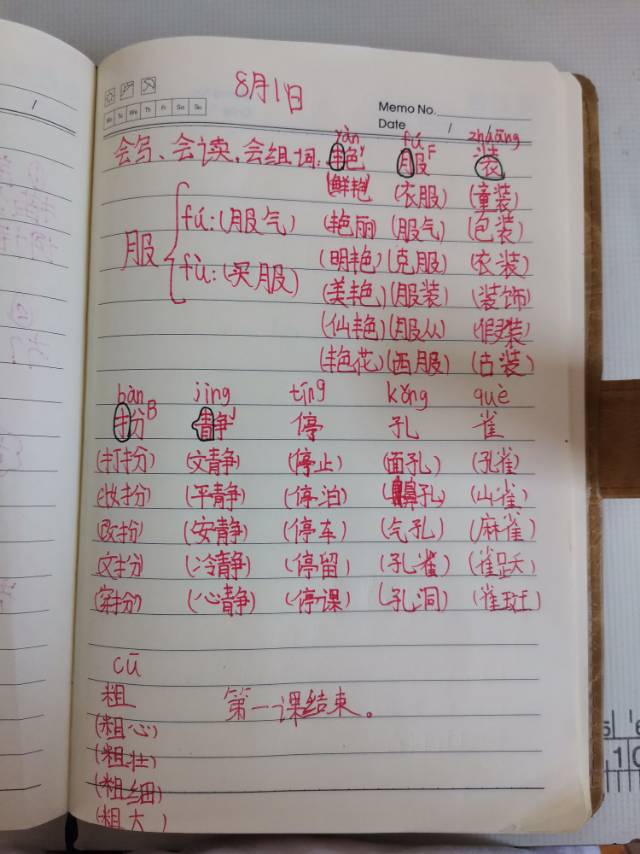 8月1日
Memo No.
Mo Tu We Th Fr Sa Su
Date /
yàn fú zhuāng
会写、会读,会组词: 艳 Y 服 F 装
(鲜艳) (衣服) (童装)
服 fú: (服气) (艳丽) (服气) (包装)
fù: (买服) (明艳) (克服) (衣装)
(美艳) (服装) (装饰)
(仙艳) (服从) (假装)
(艳花) (西服) (古装)
bàn jìng tíng kǒng què
扮 B 静 J 停 孔 雀
(打扮) (文静) (停止) (面孔) (孔雀)
(妆扮) (平静) (停泊) (鼻孔) (山雀)
(改扮) (安静) (停车) (气孔) (麻雀)
(文扮) (冷静) (停留) (孔雀) (雀跃)
(穿扮) (心静) (停课) (孔洞) (雀斑)
cū
粗 第一课结束。
(粗心)
(粗壮)
(粗细)
(粗大)